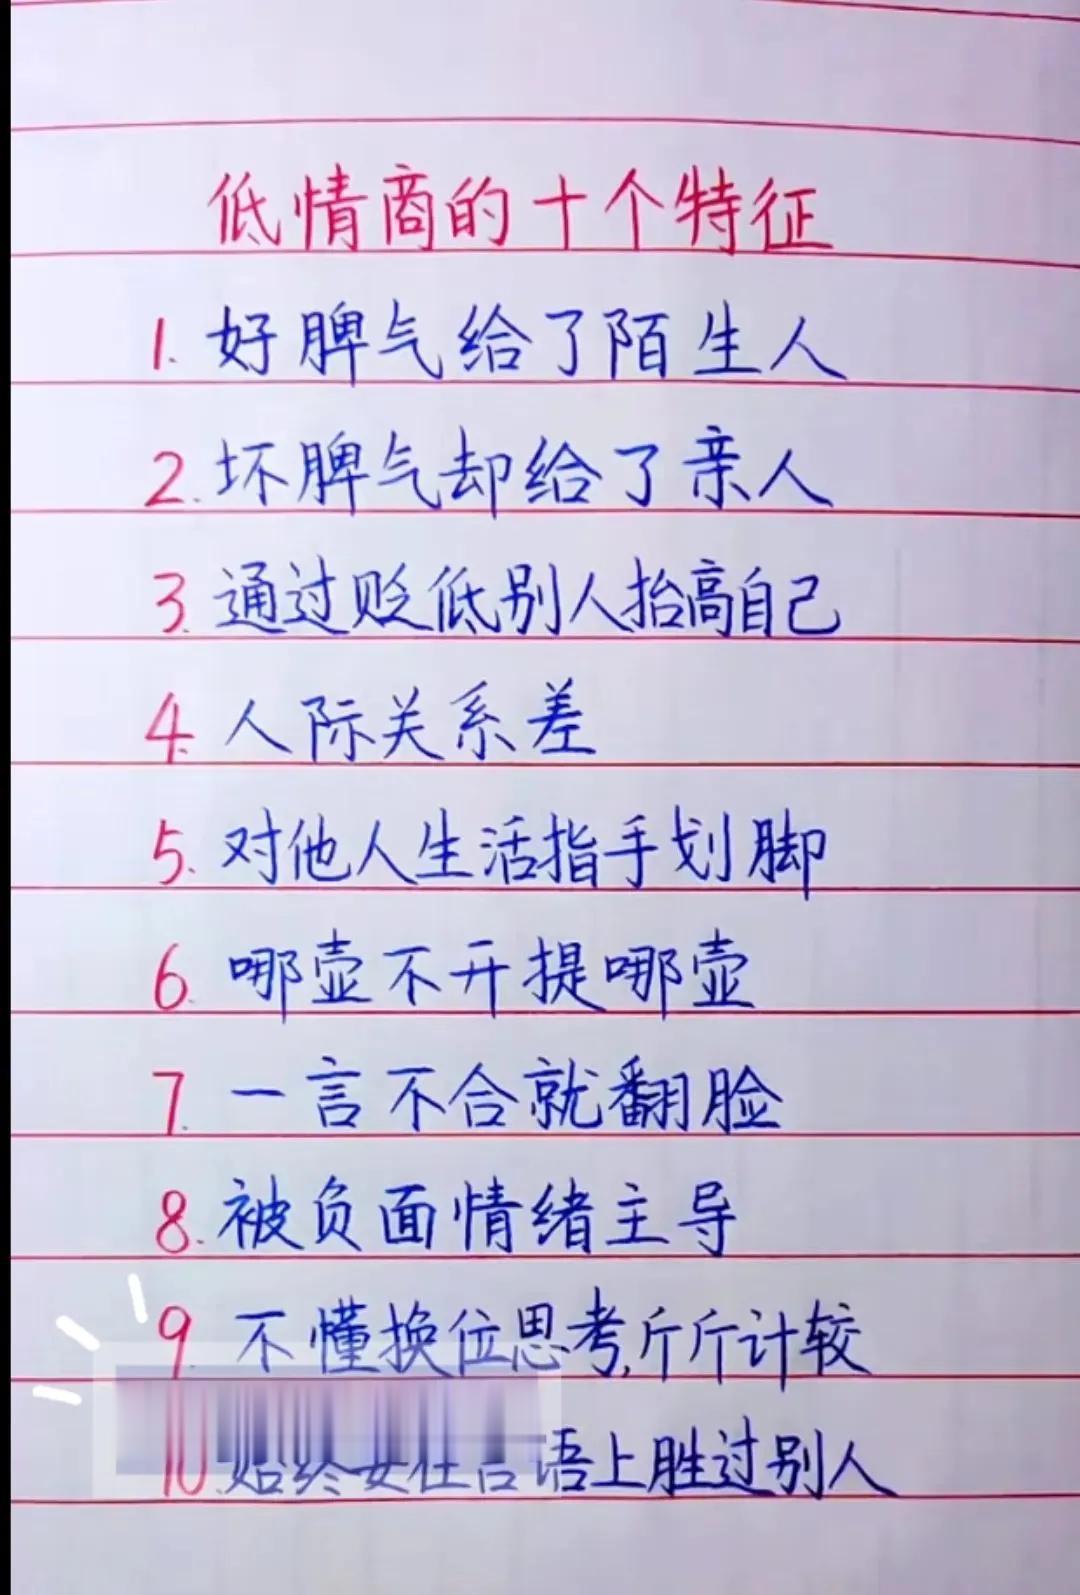 低情商的十个特征
1. 好脾气给了陌生人
2. 坏脾气却给了亲人
3. 通过贬低别人抬高自己
4. 人际关系差
5. 对他人生活指手划脚
6. 哪壶不开提哪壶
7. 一言不合就翻脸
8. 被负面情绪主导
9. 不懂换位思考,斤斤计较
10. 始终要在言语上胜过别人